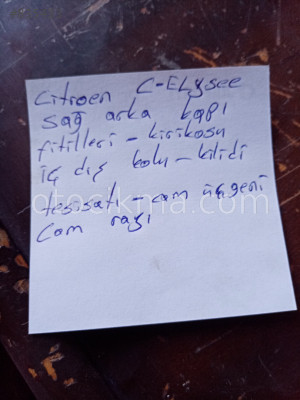 Citroen C-ELysee
Sağ arka kapı
fitilleri - kirikosu
iç dış kolu - kilidi
tesisatı - cam üçgeni
Cam rayı
otocikma.com